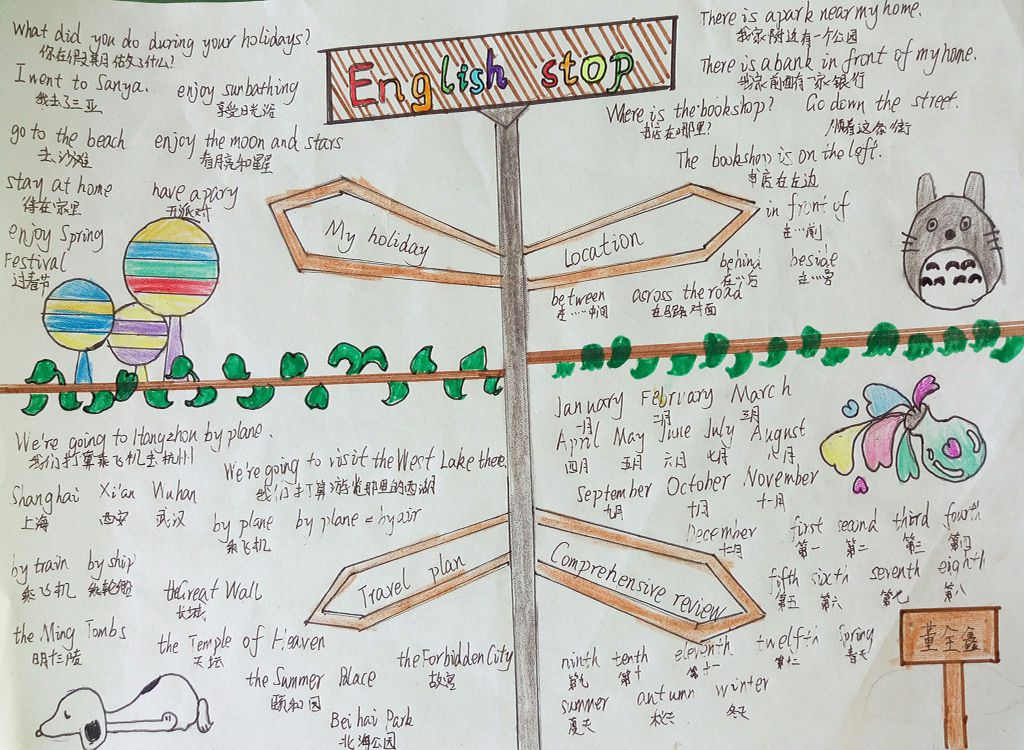 English stop
What did you do during your holidays?
你在假期日做了什么?
I went to Sanya.
我去了三亚
enjoy sunbathing
享受日光浴
go to the beach
去沙滩
enjoy the moon and stars
看月亮和星星
stay at home
待在家里
have a pary
开派对
enjoy Spring
Festival
过春节
My holiday
There is a park near my home.
我家附近有一个公园
There is a bank in front of my home.
我家前面有一家银行
Where is the bookshop?
书店在哪里?
Go down the street.
顺着这条街
The bookshop is on the left.
书店在左边
in front of
在……前
behind
在……后
beside
在……旁
between
在……中间
across the road
在马路对面
Location
We're going to Hangzhou by plane.
我们打算乘飞机去杭州
We're going to visit the West Lake there.
我们打算游览那里的西湖
Shanghai Xi'an Wuhan
上海 西安 武汉
by plane by plane = by air
乘飞机
by train by ship
乘飞机 乘轮船
the Great Wall
长城
the Ming Tombs
明十三陵
the Temple of Heaven
天坛
the Summer Palace
颐和园
the Forbidden City
故宫
Bei hai Park
北海公园
Travel plan
January February March
一月 二月 三月
April May June July August
四月 五月 六月 七月 八月
September October November
九月 十月 十一月
December
十二月
first second third fourth
第一 第二 第三 第四
fifth sixth seventh eighth
第五 第六 第七 第八
Comprehensive review
ninth tenth eleventh twelfth Spring
第九 第十 第十一 第十二 春天
summer autumn winter
夏天 秋天 冬天
董金鑫